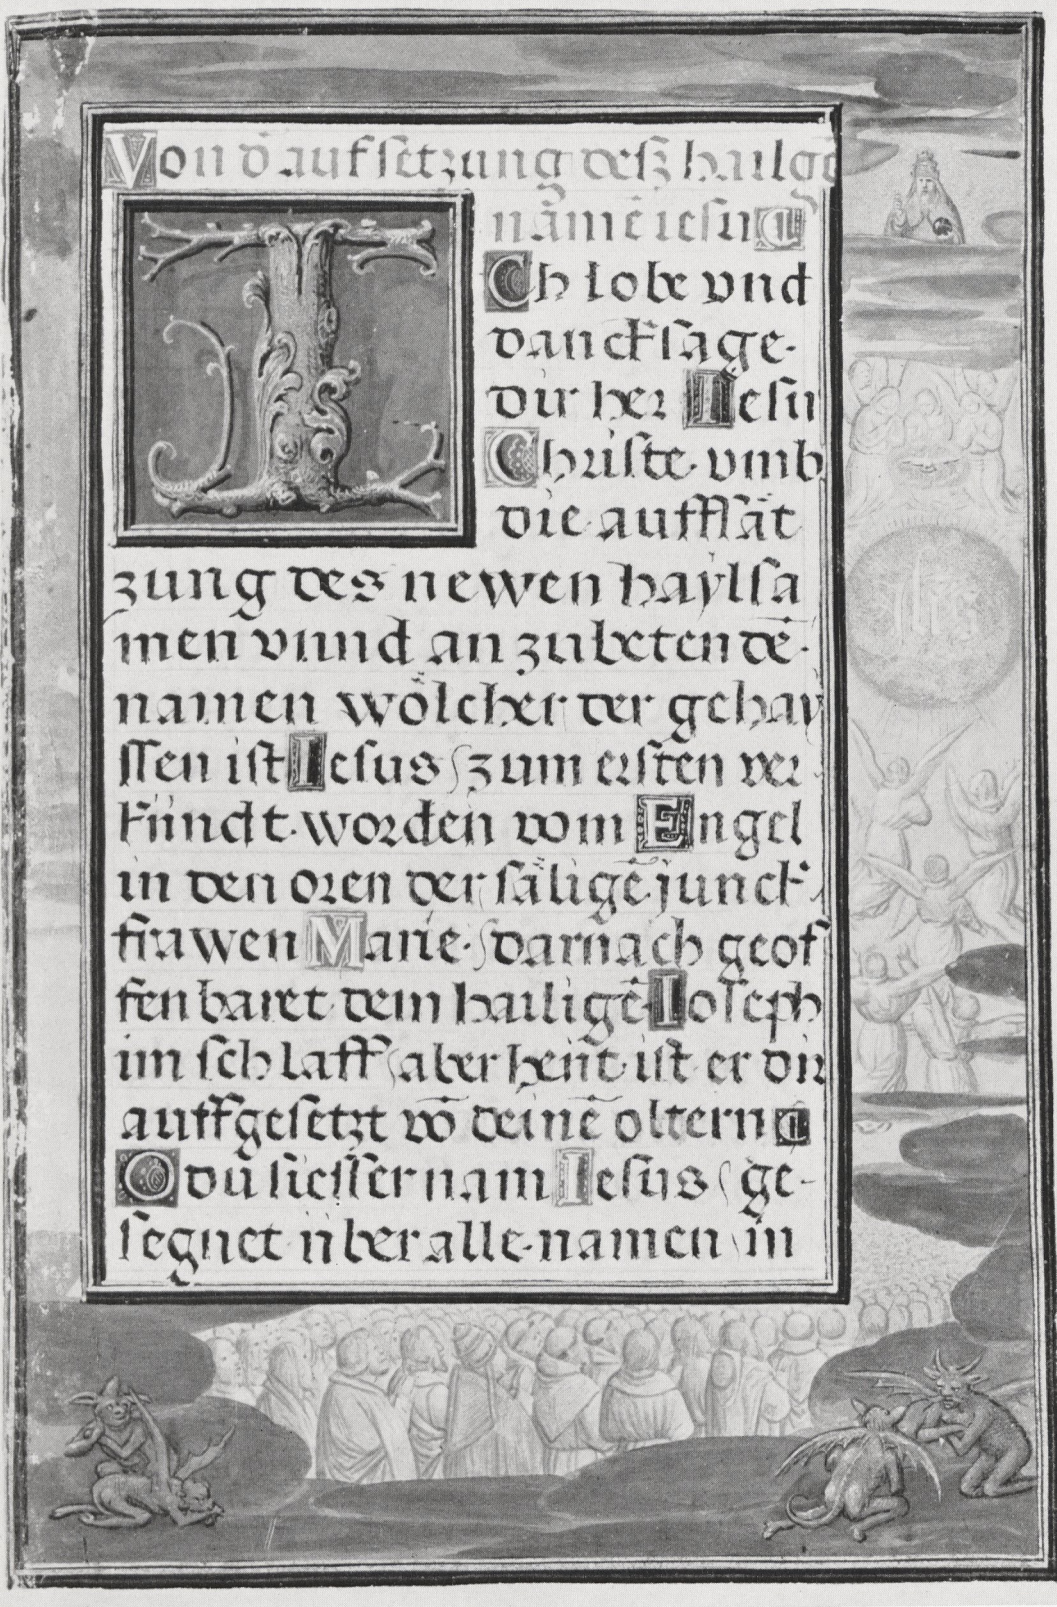 Von d̄ aufsetzung desz hailgē
namē iesu
Ich lobe vnd
dancksage·
dir her Iesu
Christe· vmb
die auffsät
zung des newen haylsa
men vnnd an zubetendē·
namen wölcher der gehay
ssen ist Iesus / zum ersten ver
kündt· worden vom Engel
in den oren der säligē junck
frawen Marie· / darnach geof
fenbaret dem hailigē Ioseph
im schlaff / aber heüt ist er dir
auffgesetzt vō deinē oltern
O du siesser nam Iesus / ge-
segnet über alle namen in